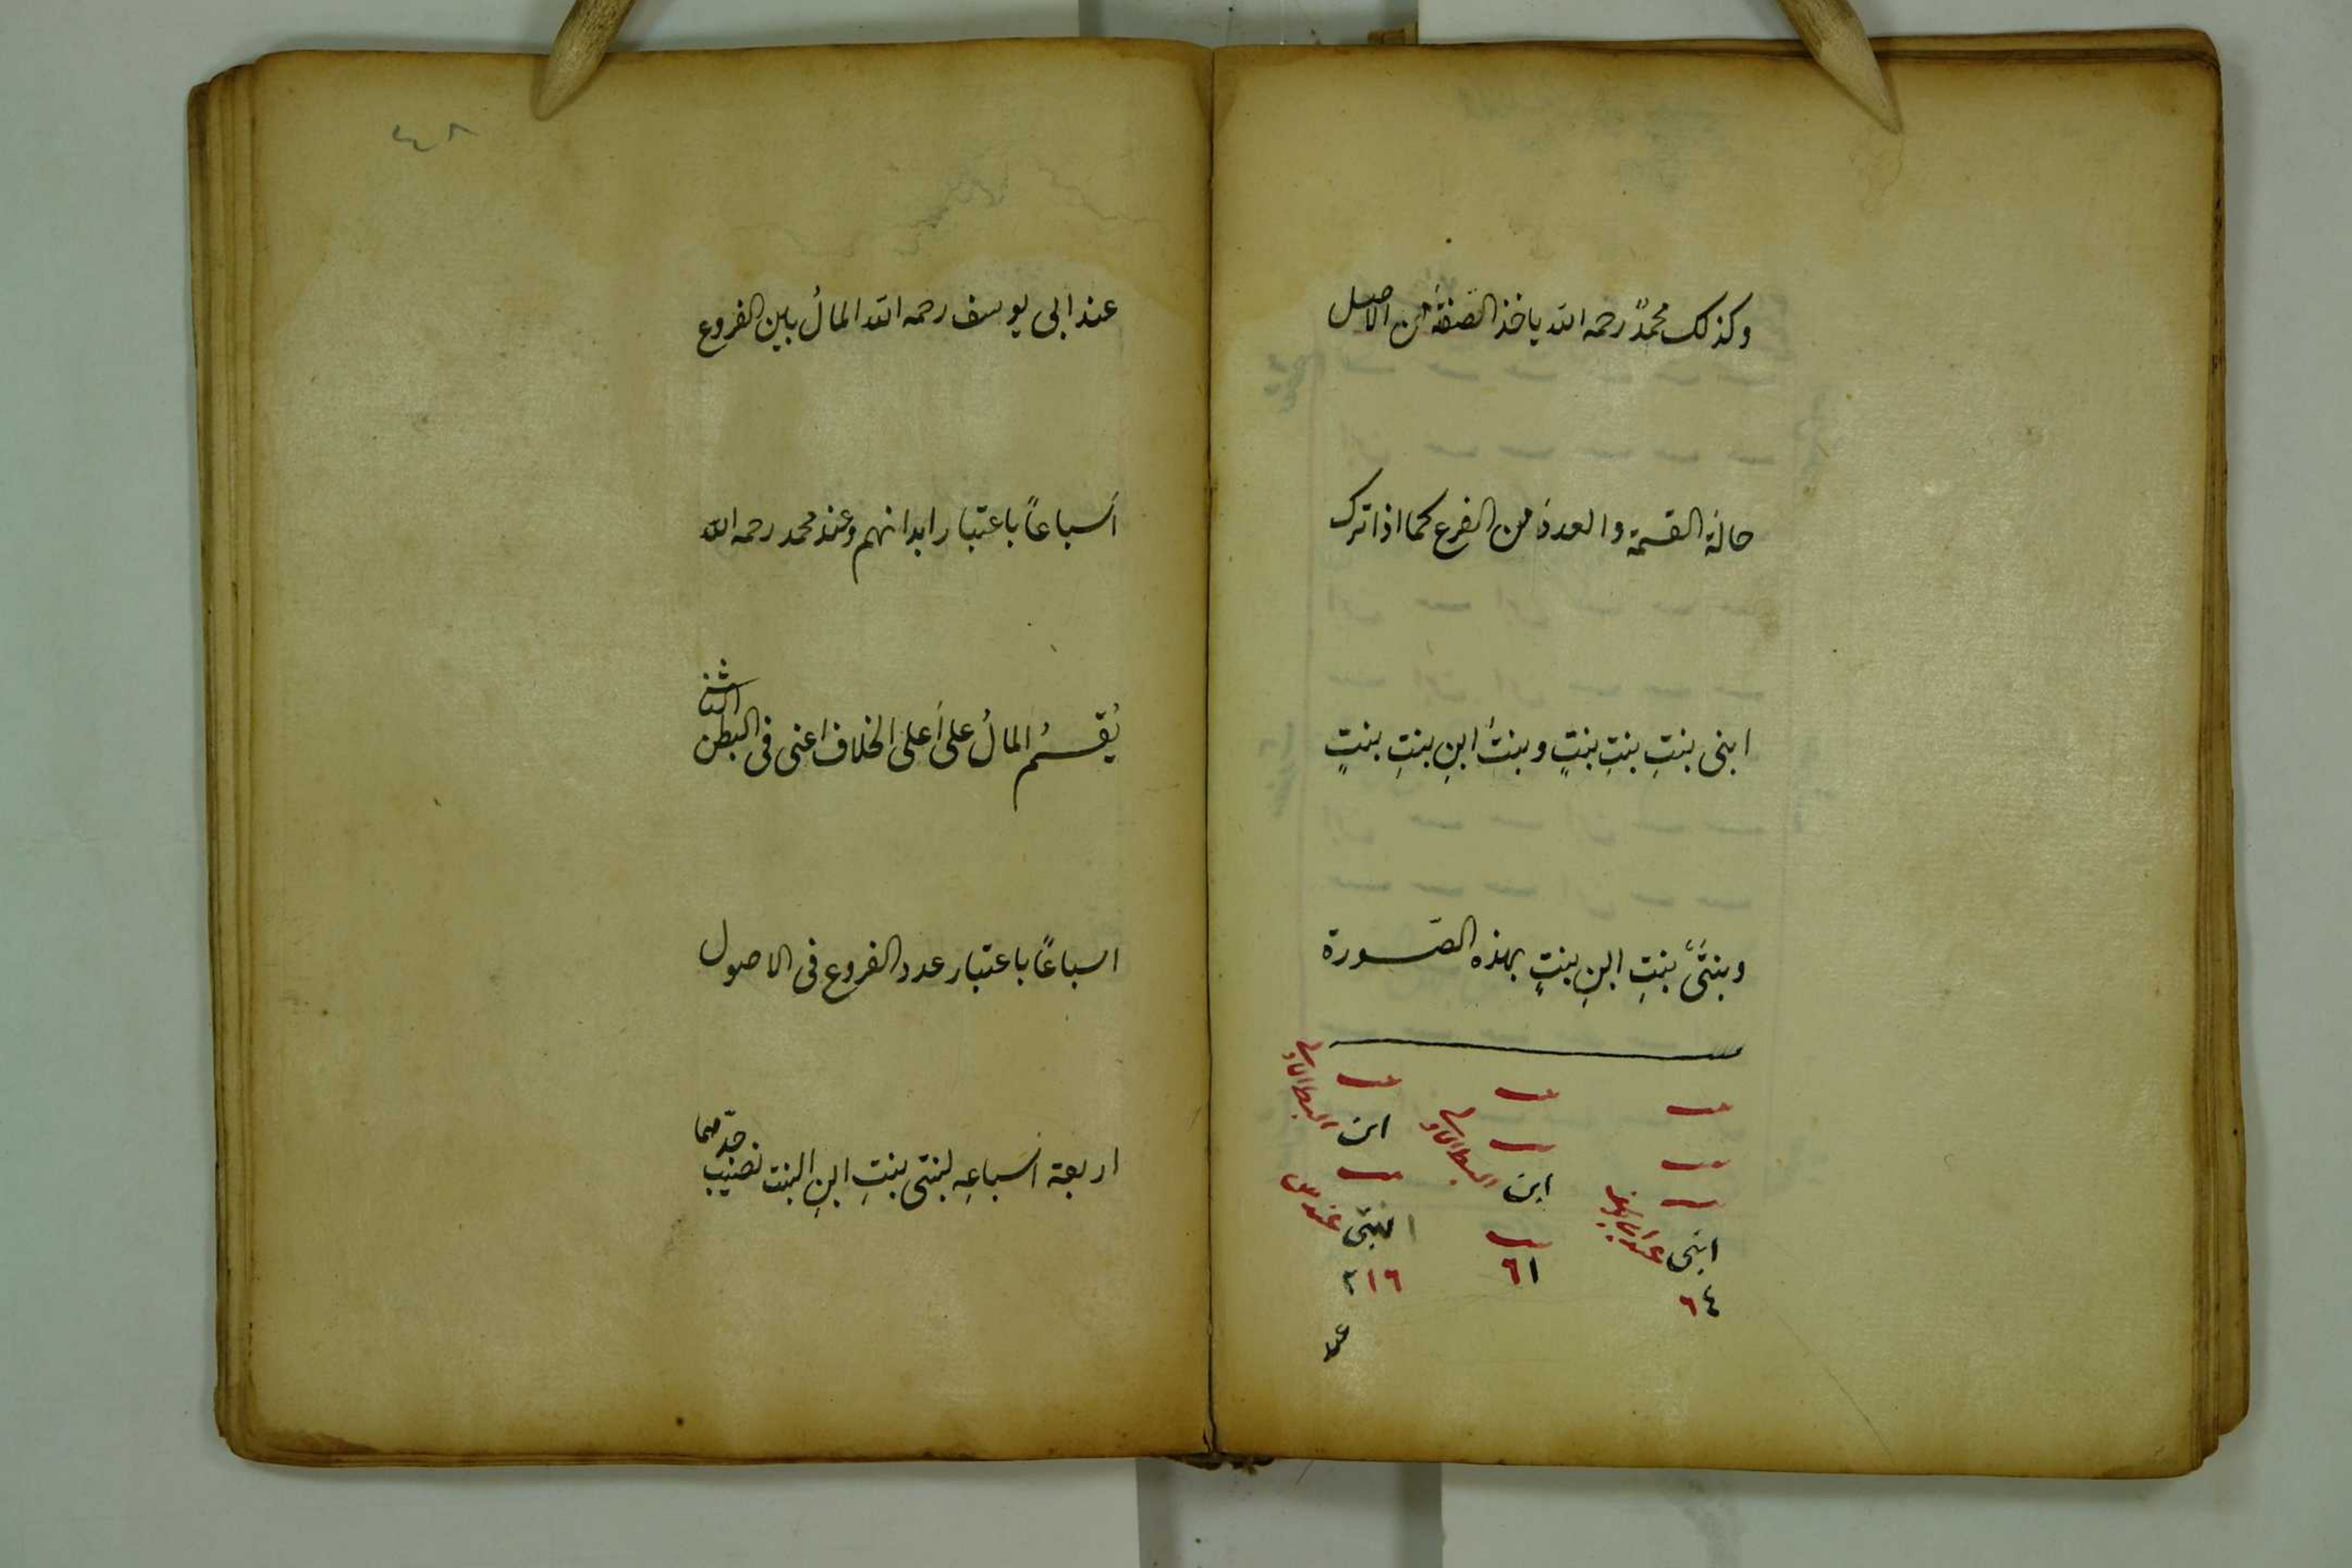 وكذلك محمدٌ رحمه الله ياخذ الصفةَ من الاصل
حالةَ القسمة والعددَ من الفرع كما اذا ترك
ابنى بنتِ بنتِ بنتٍ وبنتَ ابنِ بنتِ بنتٍ
وبنتَىْ بنتِ ابنِ بنتٍ بهذه الصّورة
بنت بنت بنت
بنت بنت ابن
بنت ابن بنت
ابنى بنت بنتى
٦٤ ٦١ ٢١٦
عند
عند ابى يوسف رحمه الله المالُ بين الفروع
اَسباعًا باعتبار ابدانهم وعند محمد رحمه الله
يُقسَمُ المالُ على اَعلى الخلاف اعنى فى البطن الثانى
اسباعًا باعتبار عدد الفروع فى الاصول
اربعة اَسباعِه لبنتى بنتِ ابنِ البنت نصيب جدّهما